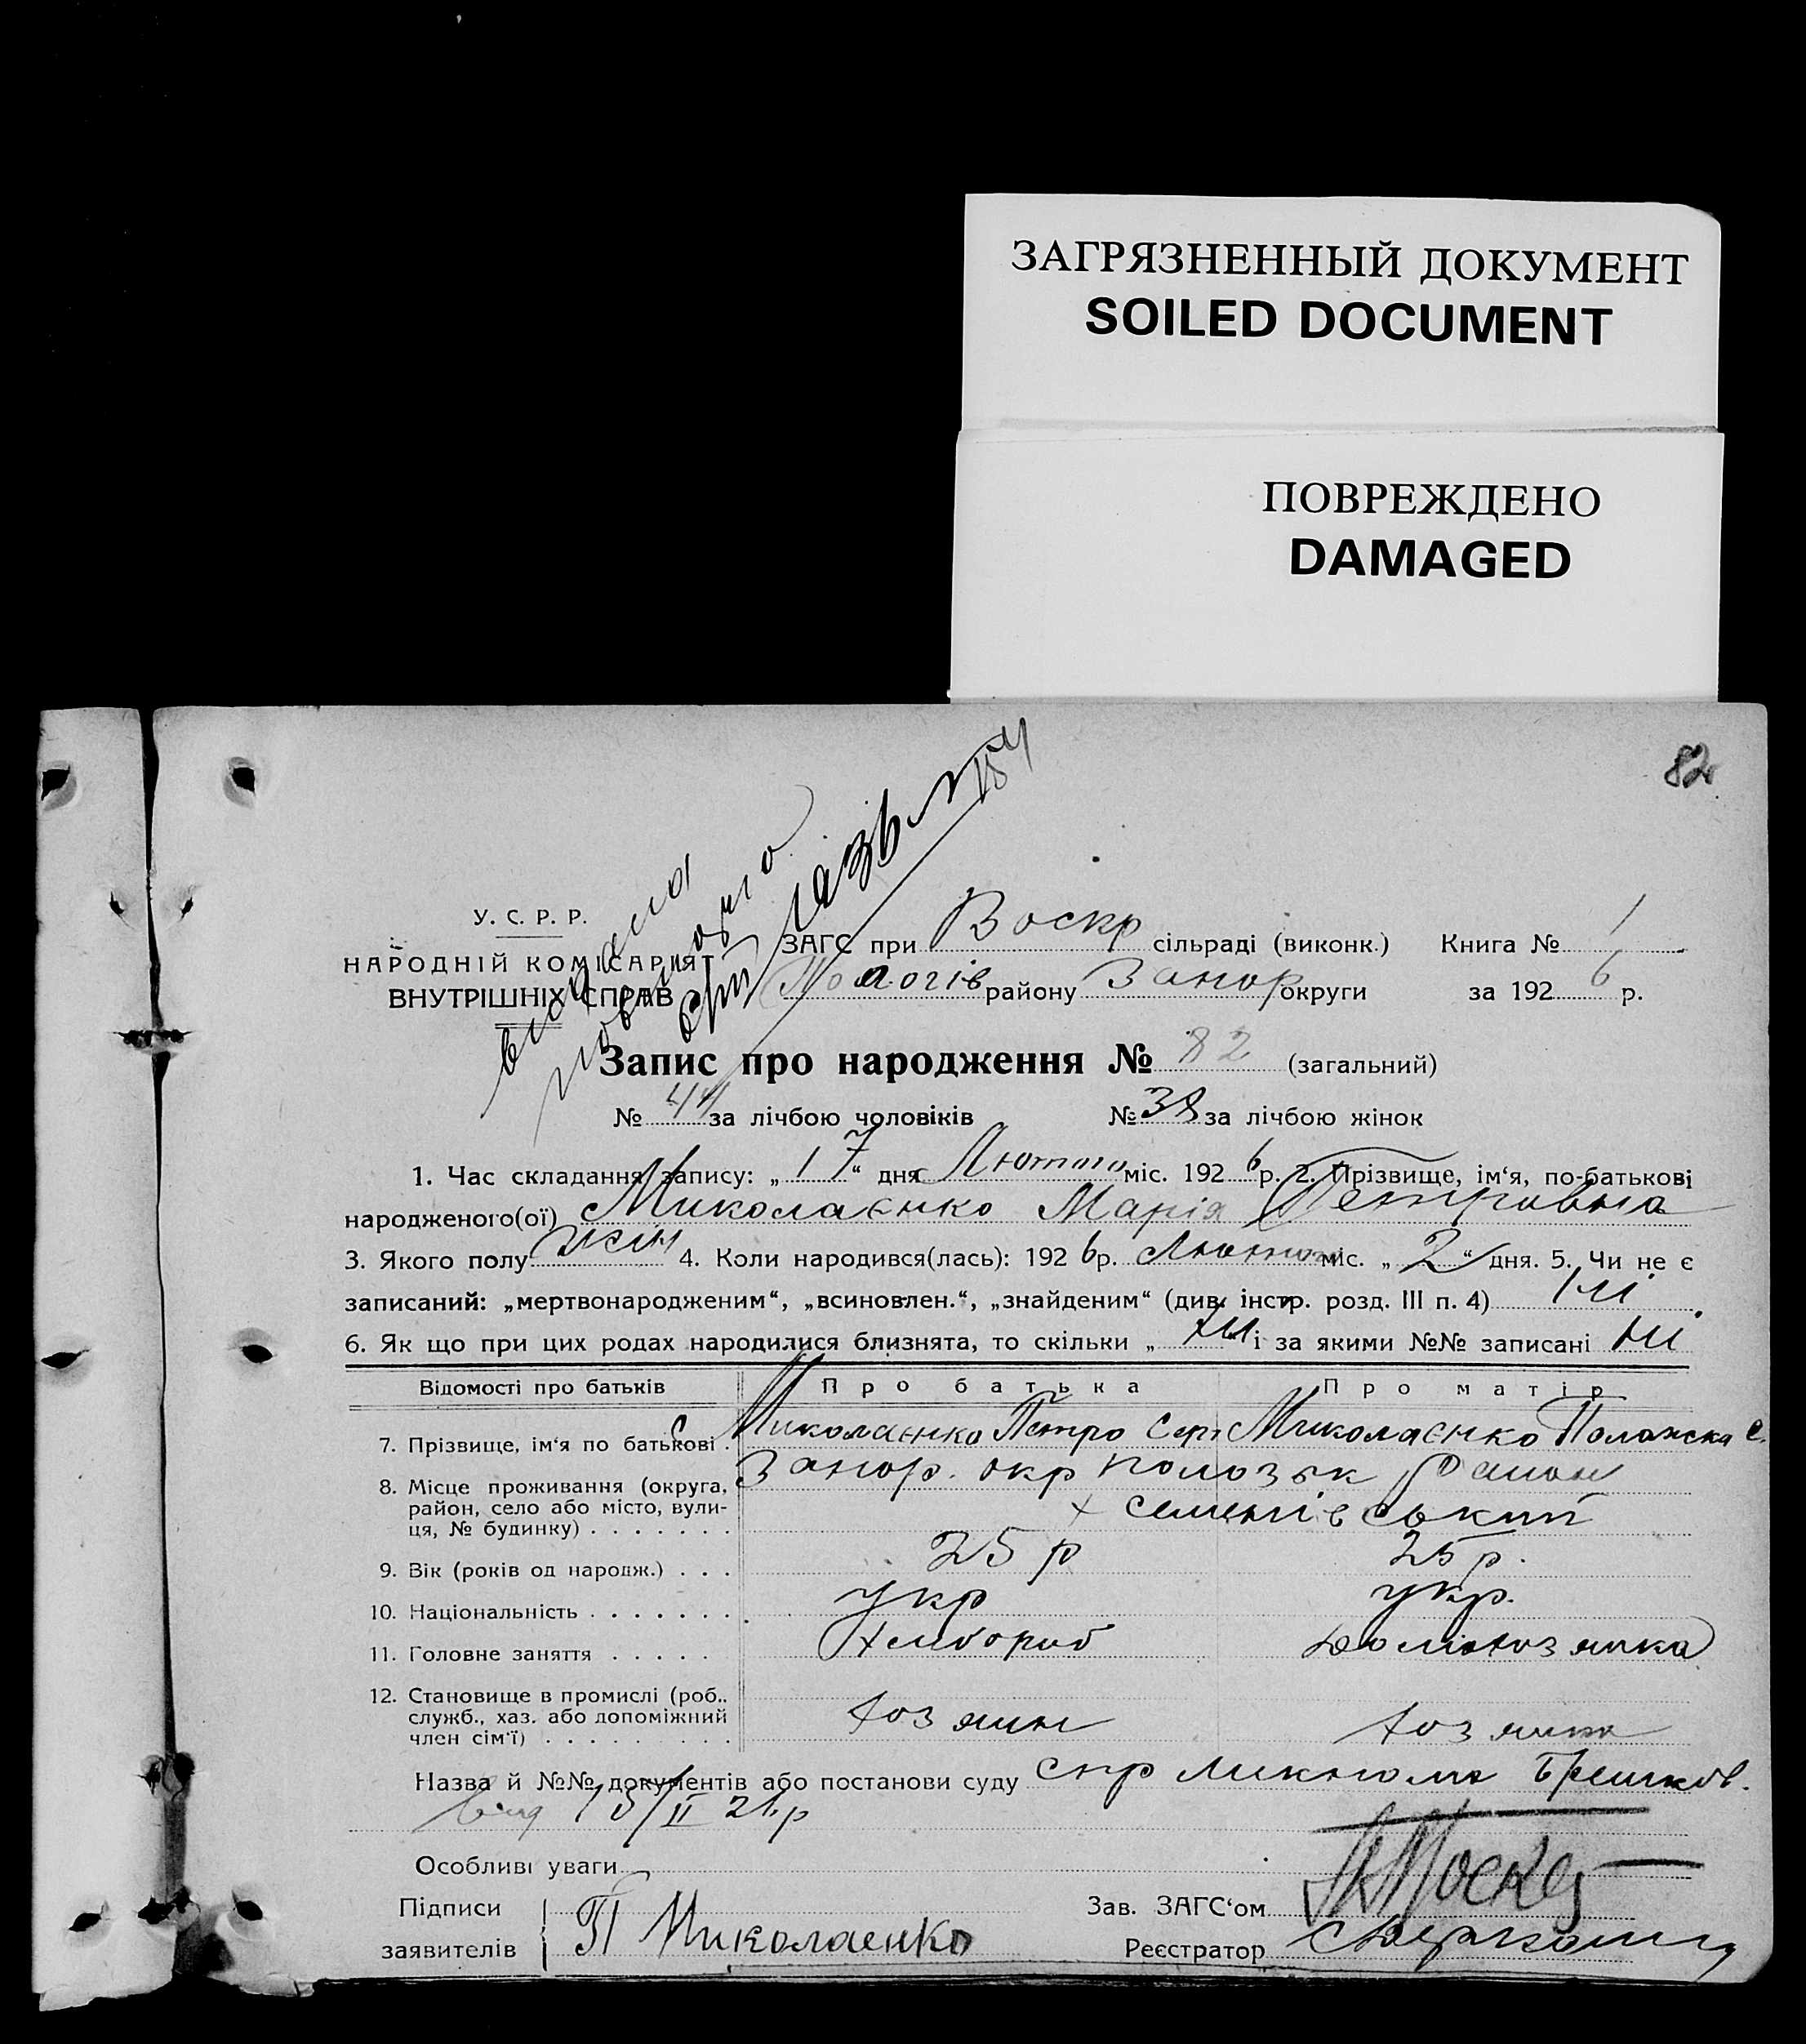 ЗАГРЯЗНЕННЫЙ ДОКУМЕНТ
SOILED DOCUMENT
ПОВРЕЖДЕНО
DAMAGED
82
У. С. Р. Р.
НАРОДНІЙ КОМІСАРІЯТ
ВНУТРІШНІХ СПРАВ
ЗАГС при Воскр сільраді (виконк.) Книга № 1
Пологів району Запор округи за 1926 р.
Запис про народження № 82 (загальний)
№ 44 за лічбою чоловіків № 38 за лічбою жінок
1. Час складання запису: „17“ дня Лютого міс. 1926 р. 2. Прізвище, ім‘я, по-батькові
народженого(ої) Миколаєнко Марія Петровна
3. Якого полу жін 4. Коли народився(лась): 1926 р. Лютого міс. „2“ дня. 5. Чи не є
записаний: „мертвонародженим“, „всиновлен.“, „знайденим“ (див. інстр. розд. III п. 4) ні
6. Як що при цих родах народилися близнята, то скільки „ні“ і за якими №№ записані ні
Відомості про батьків Про батька Про матір
7. Прізвище, ім‘я по батькові . Миколаєнко Петро Сер Миколаєнко Палажка С.
8. Місце проживання (округа, Запор. окр Пологвк Район
район, село або місто, вули- х Семенівський
ця, № будинку) . . . . . . .
9. Вік (років од народж.) . . . 25 р 25 р.
10. Національність . . . . . . . укр укр.
11. Головне заняття . . . . . Хлибориб Домохозяика
12. Становище в промислі (роб.,
служб., хаз. або допоміжний Хозяин Хозяика
член сім‘ї) . . . . . . . . .
Назва й №№ документів або постанови суду
від 15/II 26 р
Особливі уваги
Підписи Зав. ЗАГС‘ом
заявителів П Миколаенко Реєстратор